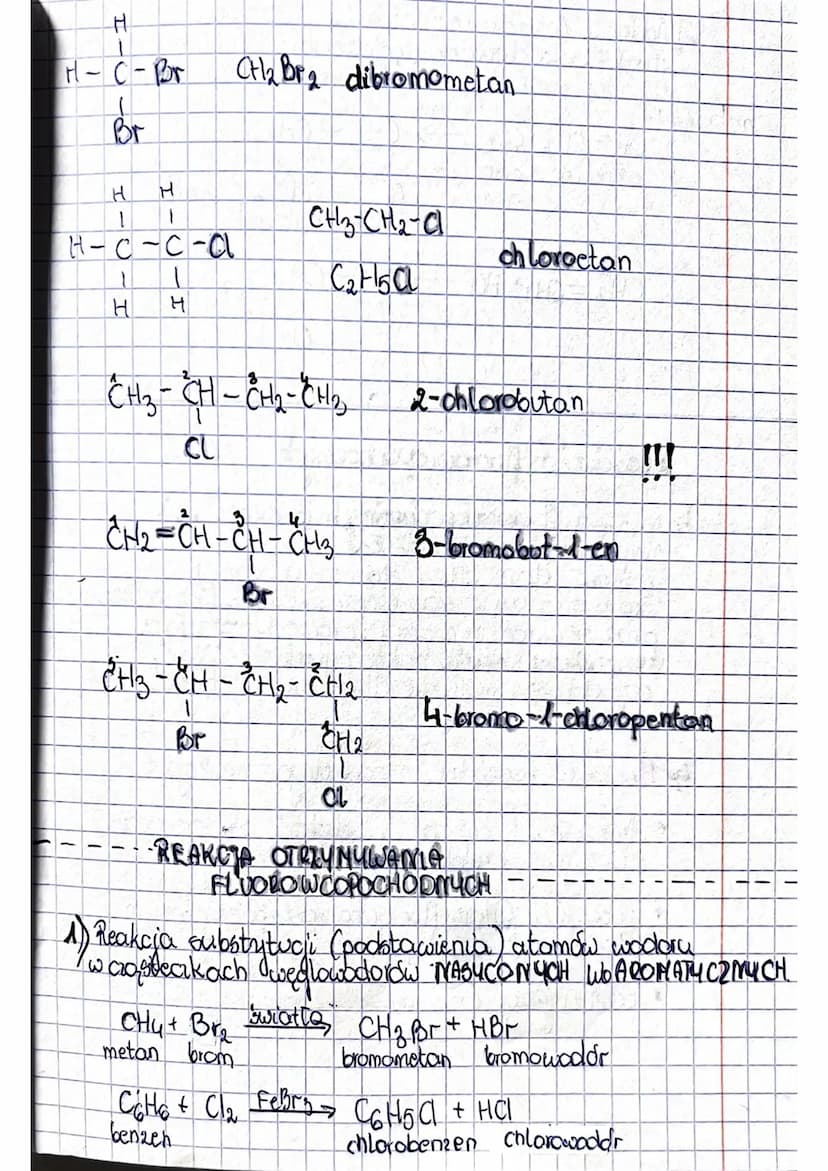 H
H - C - Br CH2Br2 dibromometan
Br
H H
H - C - C - Cl CH3-CH2-Cl
C2H5Cl chloroetan
H H
1 2 3 4
CH3 - CH - CH2 - CH3 2-chlorobutan
Cl
!!!
1 2 3 4
CH2 = CH - CH - CH3 3-bromobut-1-en
Br
5 4 3 2
CH3 - CH - CH2 - CH2
4-bromo-1-chloropentan
Br 1CH2
Cl
REAKCJA OTRZYMYWANIA
FLUOROWCOPOCHODNYCH
1) Reakcja substytucji (podstawienia) atomów wodoru
w cząsteczkach węglowodorów NASYCONYCH lub AROMATYCZNYCH
CH4 + Br2 światło CH3Br + HBr
metan brom bromometan bromowodór
C6H6 + Cl2 FeBr3 C6H5Cl + HCl
benzen chlorobenzen chlorowodór